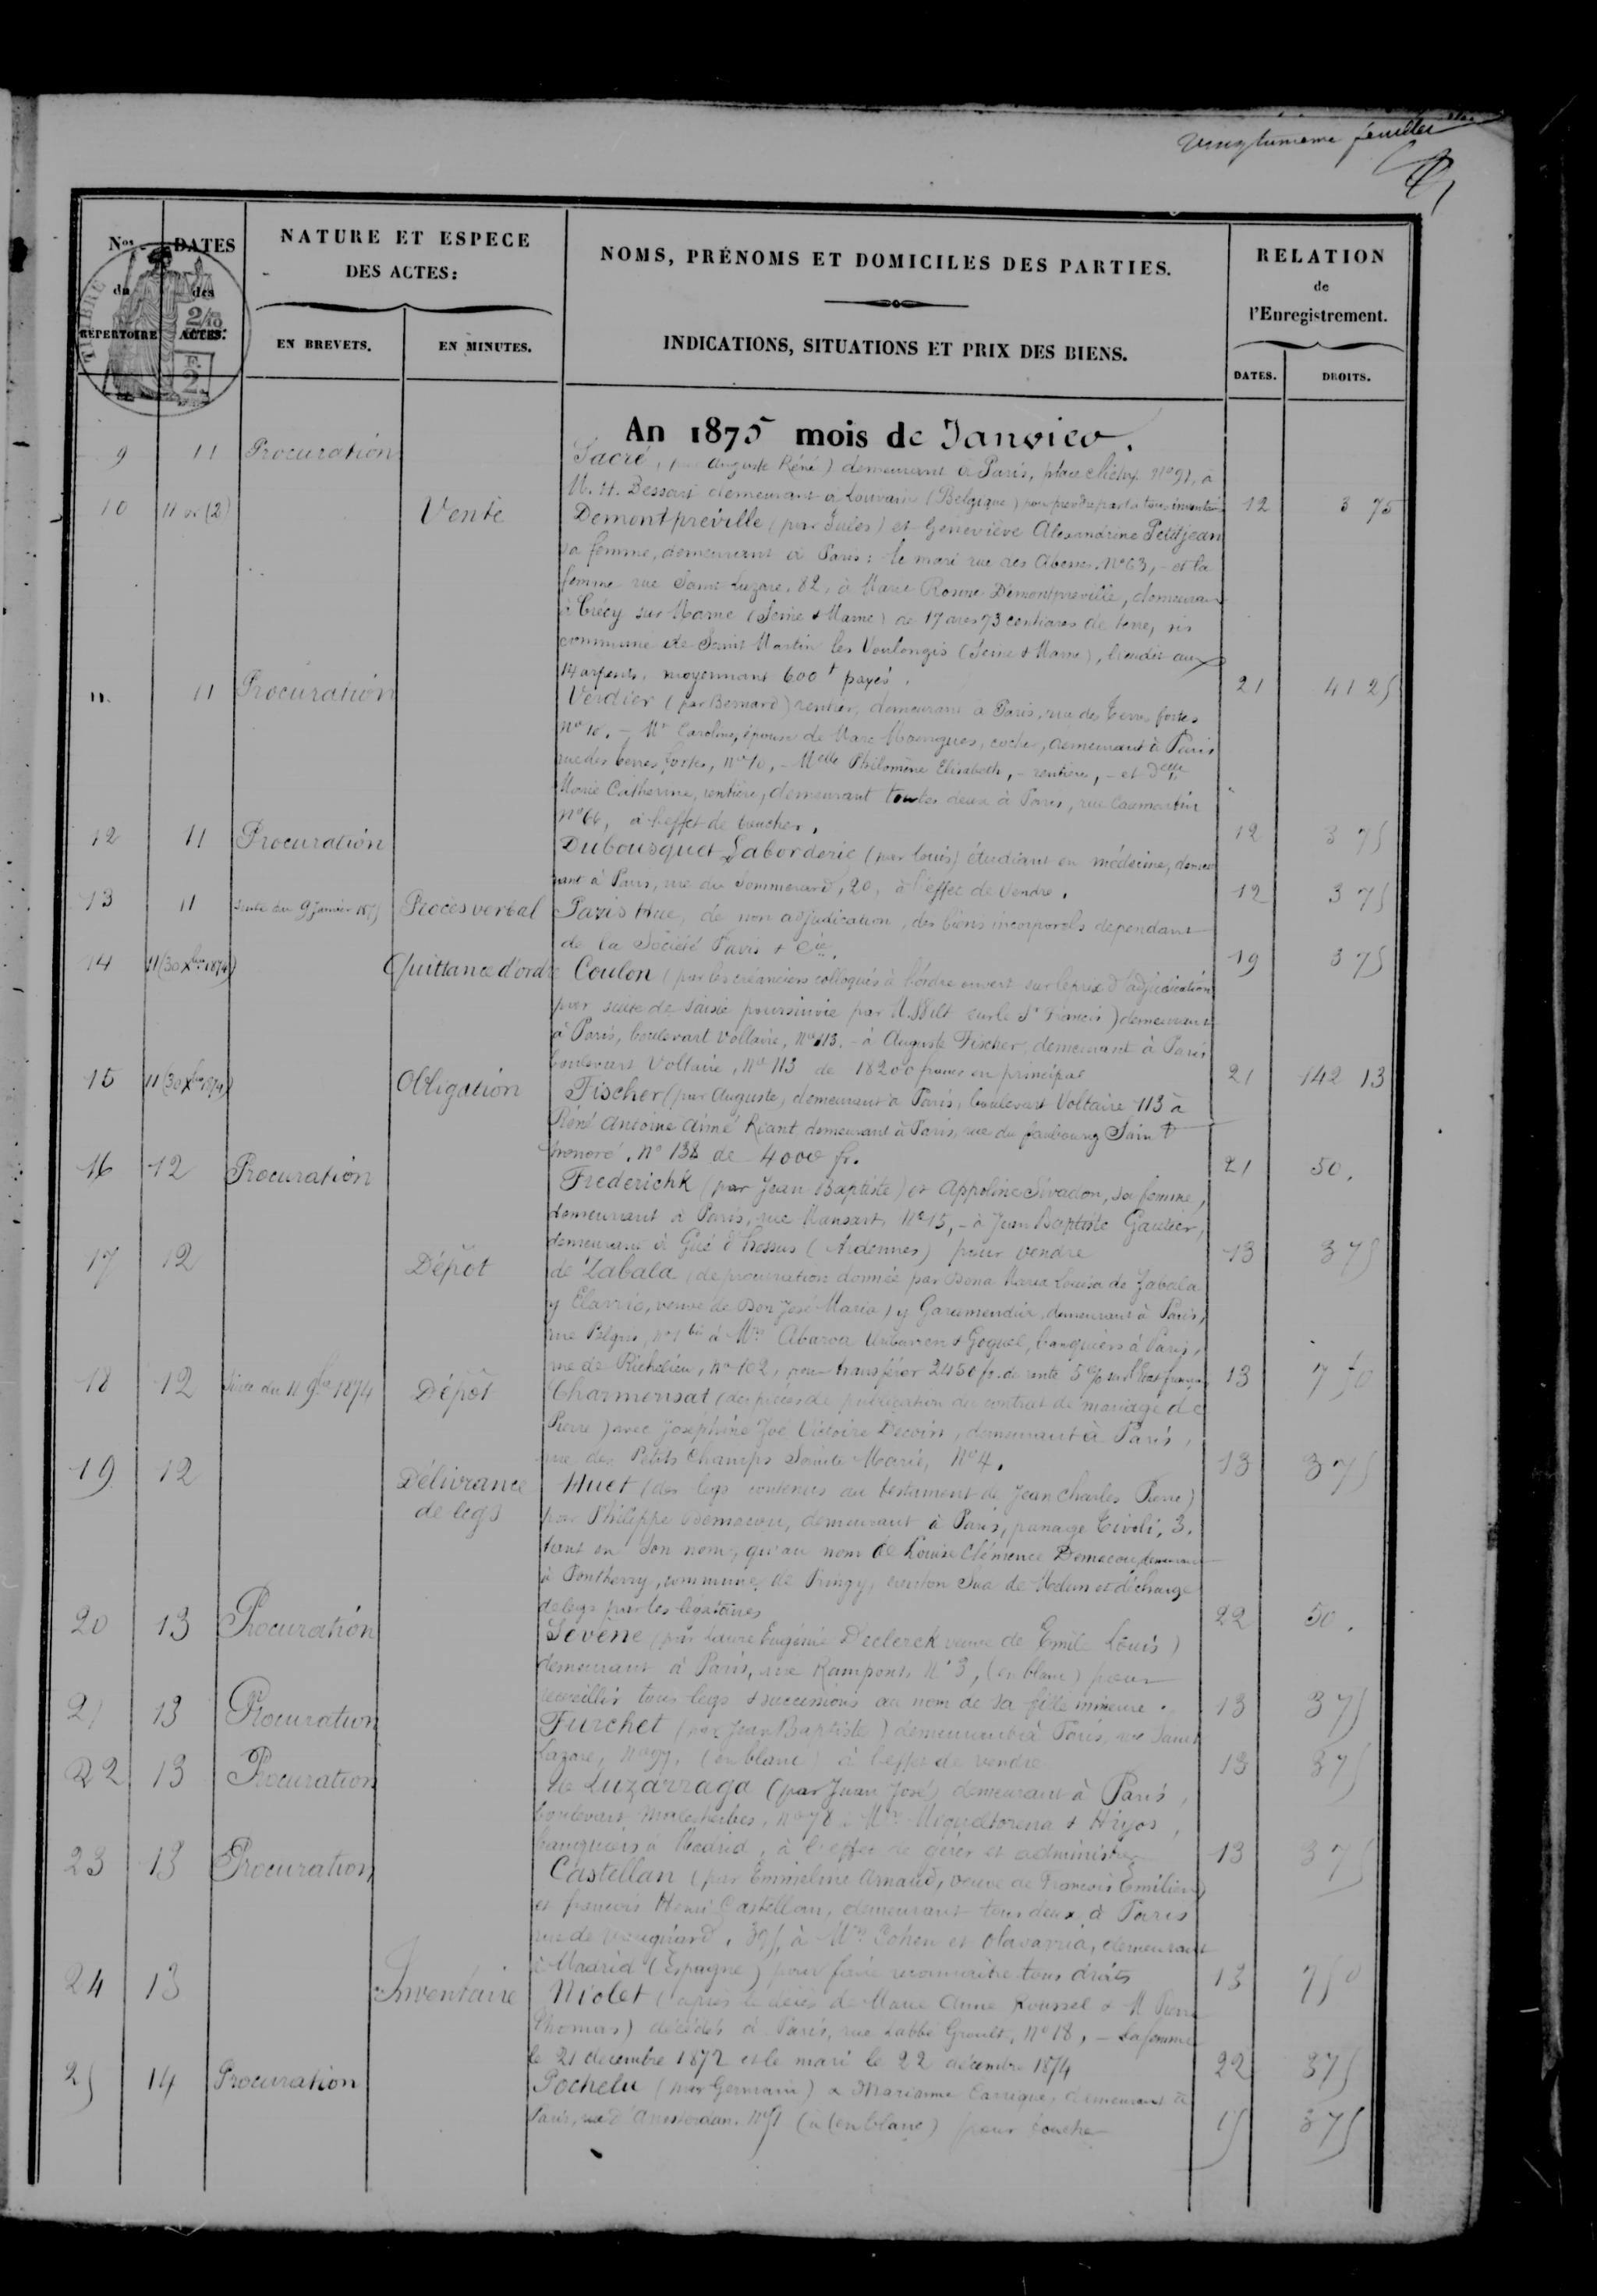 vingtunieme feuillet
Nos du RÉPERTOIRE
DATES des ACTES.
NATURE ET ESPECE DES ACTES:
EN BREVETS.
EN MINUTES.
NOMS, PRÉNOMS ET DOMICILES DES PARTIES.
INDICATIONS, SITUATIONS ET PRIX DES BIENS.
RELATION de l'Enregistrement.
DATES.
DROITS.
TIMBRE
2/10
F. 2.
An 1875 mois de Janvier.
9 11 Procuration Sacré, (par Auguste Réné) demeurant à Paris, place Clichy, No 91, à
M. H. Dessart demeurant à Louvain (Belgique) pour prendre part à tous inventaires 12 3 75
10 11 (2) Vente Demontpreville (par Jules) et Geneviève Alexandrine Petitjean
sa femme, demeurant à Paris: le mari rue des Abesses. No 63, - et la
femme rue Saint Lazare. 82, à Marie Rosine Demontpreville, demeurant
à Crécy sur Marne (Seine & Marne) de 17 ares 73 centiares de terre, sis
commune de Saint Martin les Voulangis (Seine & Marne), lieudit aux
14 arpents, moyennant 600 f payés. 21 41 25
11. 11 Procuration Verdier (par Bernard) rentier, demeurant à Paris, rue des Terres fortes
No 10. - Mt Caroline, épouse de Marc, cocher, demeurant à Paris
rue des terres fortes, No 10, - Melle Philomène Elisabeth, - rentière, - et Delle
Marie Catherine, rentière, demeurant toutes deux à Paris, rue Caumartin
No 66, à l'effet de toucher. 12 3 75
12 11 Procuration Dubousquet Laborderie (par Louis) étudiant en médecine, demeu
rant à Paris, rue du Sommerard, 20, à l'effet de vendre. 12 3 75
13 11 suite du 9 janvier 1875 Procès verbal Paris Hue, de non adjudication, des biens incorporels dependant
de la Société Paris & Cie. 19 3 75
14 11 (30 Xbre 1874) Quittance d'ordre Coulon (par les créanciers colloqués à l'ordre ouvert sur le prix d'adjudication
par suite de saisie poursuivie par M. sur le Sr Francis) demeurant
à Paris, boulevart Voltaire, No 113. - à Auguste Fischer, demeurant à Paris
boulevart Voltaire, No 113 de 18200 francs en principal 21 142 13
15 11 (30 Xbre 1874) Obligation Fischer (par Auguste, demeurant à Paris, boulevart Voltaire 113 à
Réné Antoine Aimé Riant demeurant à Paris, rue du faubourg Saint
honoré. No 138 de 4000 fr. 21 50.
16 12 Procuration Frederichk (par Jean Baptiste) et Appoline Sivadon, sa femme,
demeurant à Paris, rue Mansart, No 15, - à Jean Baptiste Gautier,
demeurant à Gué d'Hossus (Ardennes) pour vendre 13 3 75
17 12 Dépôt de Zabala (de procuration donnée par Dona Maria Louisa de Zabala
y, veuve de Don José Maria) y Garumendia, demeurant à Paris,
rue, No 1 bis à Mrs Abaroa Uribarren & Goguel, banquiers à Paris,
rue de Richelieu, No 102, pour transférer 2450 fr. de rente 5 % sur l'Etat français 13 7 50
18 12 suite du 11 9bre 1874 Dépôt Charmensat (des pièces de publication du contrat de mariage de
Pierre) avec Joséphine Victoire Decoin, demeurant à Paris,
rue des Petits Champs Sainte Marie, No 4. 13 3 75
19 12 Délivrance de legs Huet (des legs contenus au testament de Jean Charles Pierre)
par Philippe Demacou, demeurant à Paris, passage Tivoli, 3.
tant en son nom, qu'au nom de Louise Clémence Demacou, demeurant
à Ponthierry, commune de Pringy, canton Sud de Melun et décharge
de legs par les légataires 22 50.
20 13 Procuration Sevene (par Laure Eugénie Declerck veuve de Emile Louis)
demeurant à Paris, rue Rampont, No 3, (en blanc) pour
recueillir tous legs & successions au nom de sa fille mineure. 13 3 75
21 13 Procuration Furchet (par Jean Baptiste) demeurant à Paris, rue Saint
Lazare, No 97, (en blanc) à l'effet de vendre 13 3 75
22 13 Procuration de Luzarraga (par Juan José) demeurant à Paris,
boulevart Malesherbes, No 78 à Mrs Miqueltorena & Hijos,
banquiers à Madrid, à l'effet de gérer et administrer 13 3 75
23 13 Procuration Castellan (par Emmeline Arnaud, veuve de François Emilien)
et françois Henri Castellan, demeurant tous deux à Paris
rue de Vaugirard. 395, à Mrs Cohen et Olavarria, demeurant
à Madrid (Espagne) pour faire reconnaitre tous droits 13 7 50
24 13 Inventaire Niolet (après le décès de Marie Anne Roussel & M Pierre
Thomas) décédés à Paris, rue Labbé Groult, No 18, - La femme
le 21 décembre 1872 et le mari le 22 décembre 1874 22 3 75
25 14 Procuration Pochelu (par Germain) & Marianne Carrique, demeurant à
Paris, rue d'Amsterdam. (en blanc) pour toucher 15 3 75